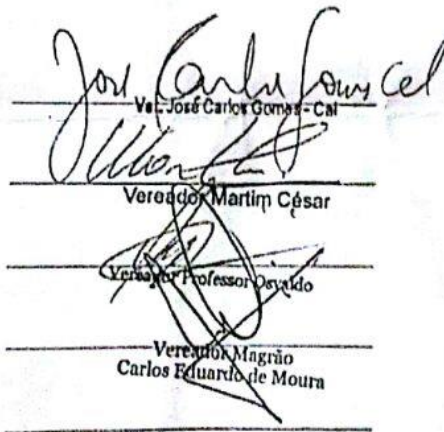 José Carlos Gomes Cal
Ver. José Carlos Gomes - Cal
Vereador Martim César
Vereador Professor Osvaldo
Vereador Magrão
Carlos Eduardo de Moura